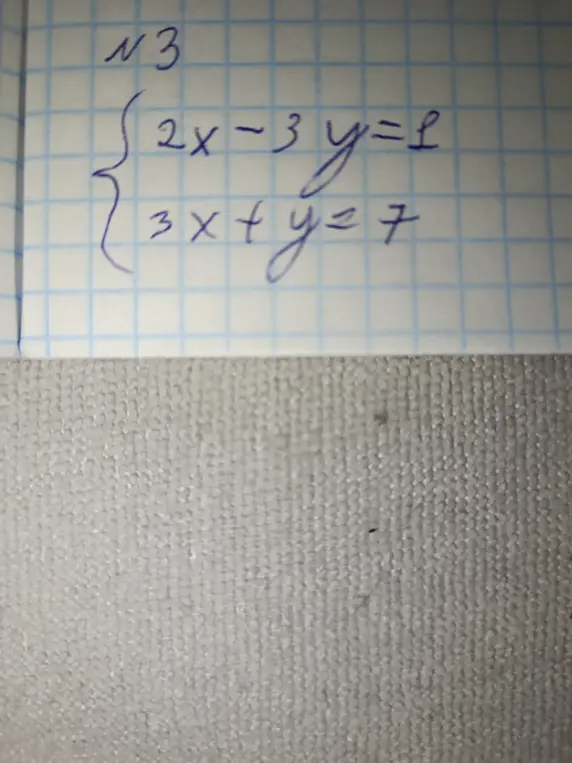 №3
2x-3y=1
3x+y=7